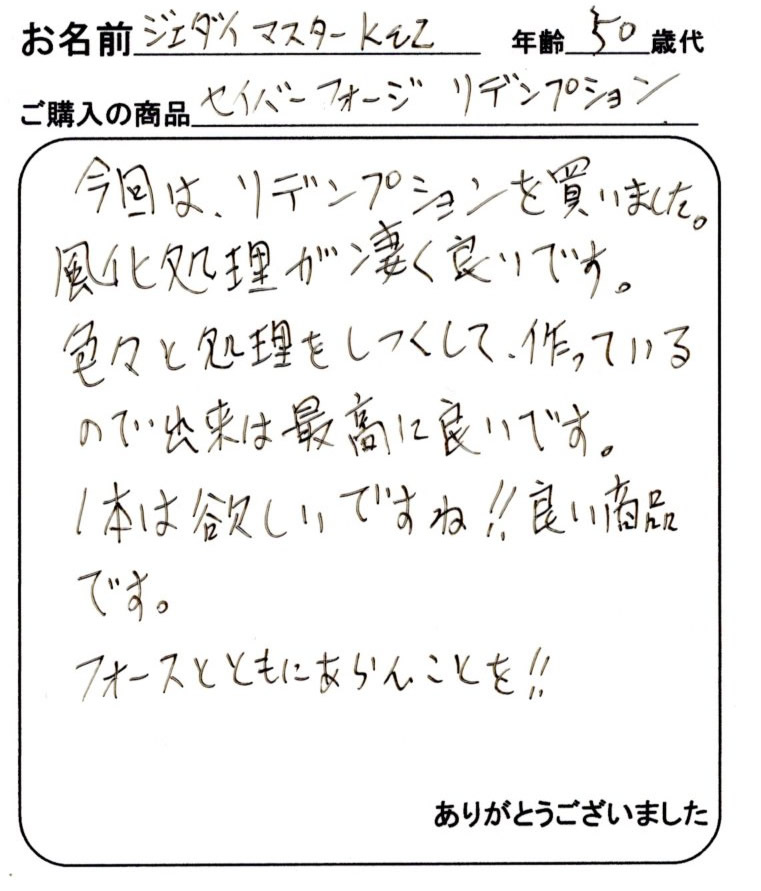 お名前 ジェダイ マスター Kez 年齢 50 歳代
ご購入の商品 セイバーフォージ リデンプション
今回は、リデンプションを買いました。
風化処理が凄く良いです。
色々と処理をしつくして、作っている
ので出来は最高に良いです。
1本は欲しいですね!!良い商品
です。
フォースとともにあらんことを!!
ありがとうございました